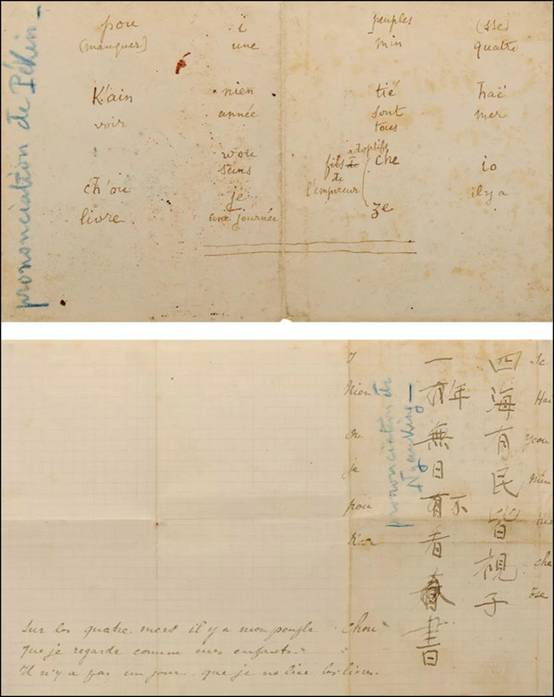 prononciation de Pékin
pou
(manquer)
K'ain
voir
ch'ou
livre
i
une
nien
année
wou
je
une journée
peuples
min
tié
sont
tous
adoptifs
fils
de
l'empereur
che
ze
(sse)
quatre
haé
mer
io
il y a
四海有民皆視子
一有無日有者
年
不
書
prononciation de
Nganking
Nien
Ou
je
pou
Chou
Hai
yeou
Min
che
tse
Sur les quatre mers il y a mon peuple
que je regarde comme mes enfants.
Il n'y a pas un jour que je ne lise les livres.